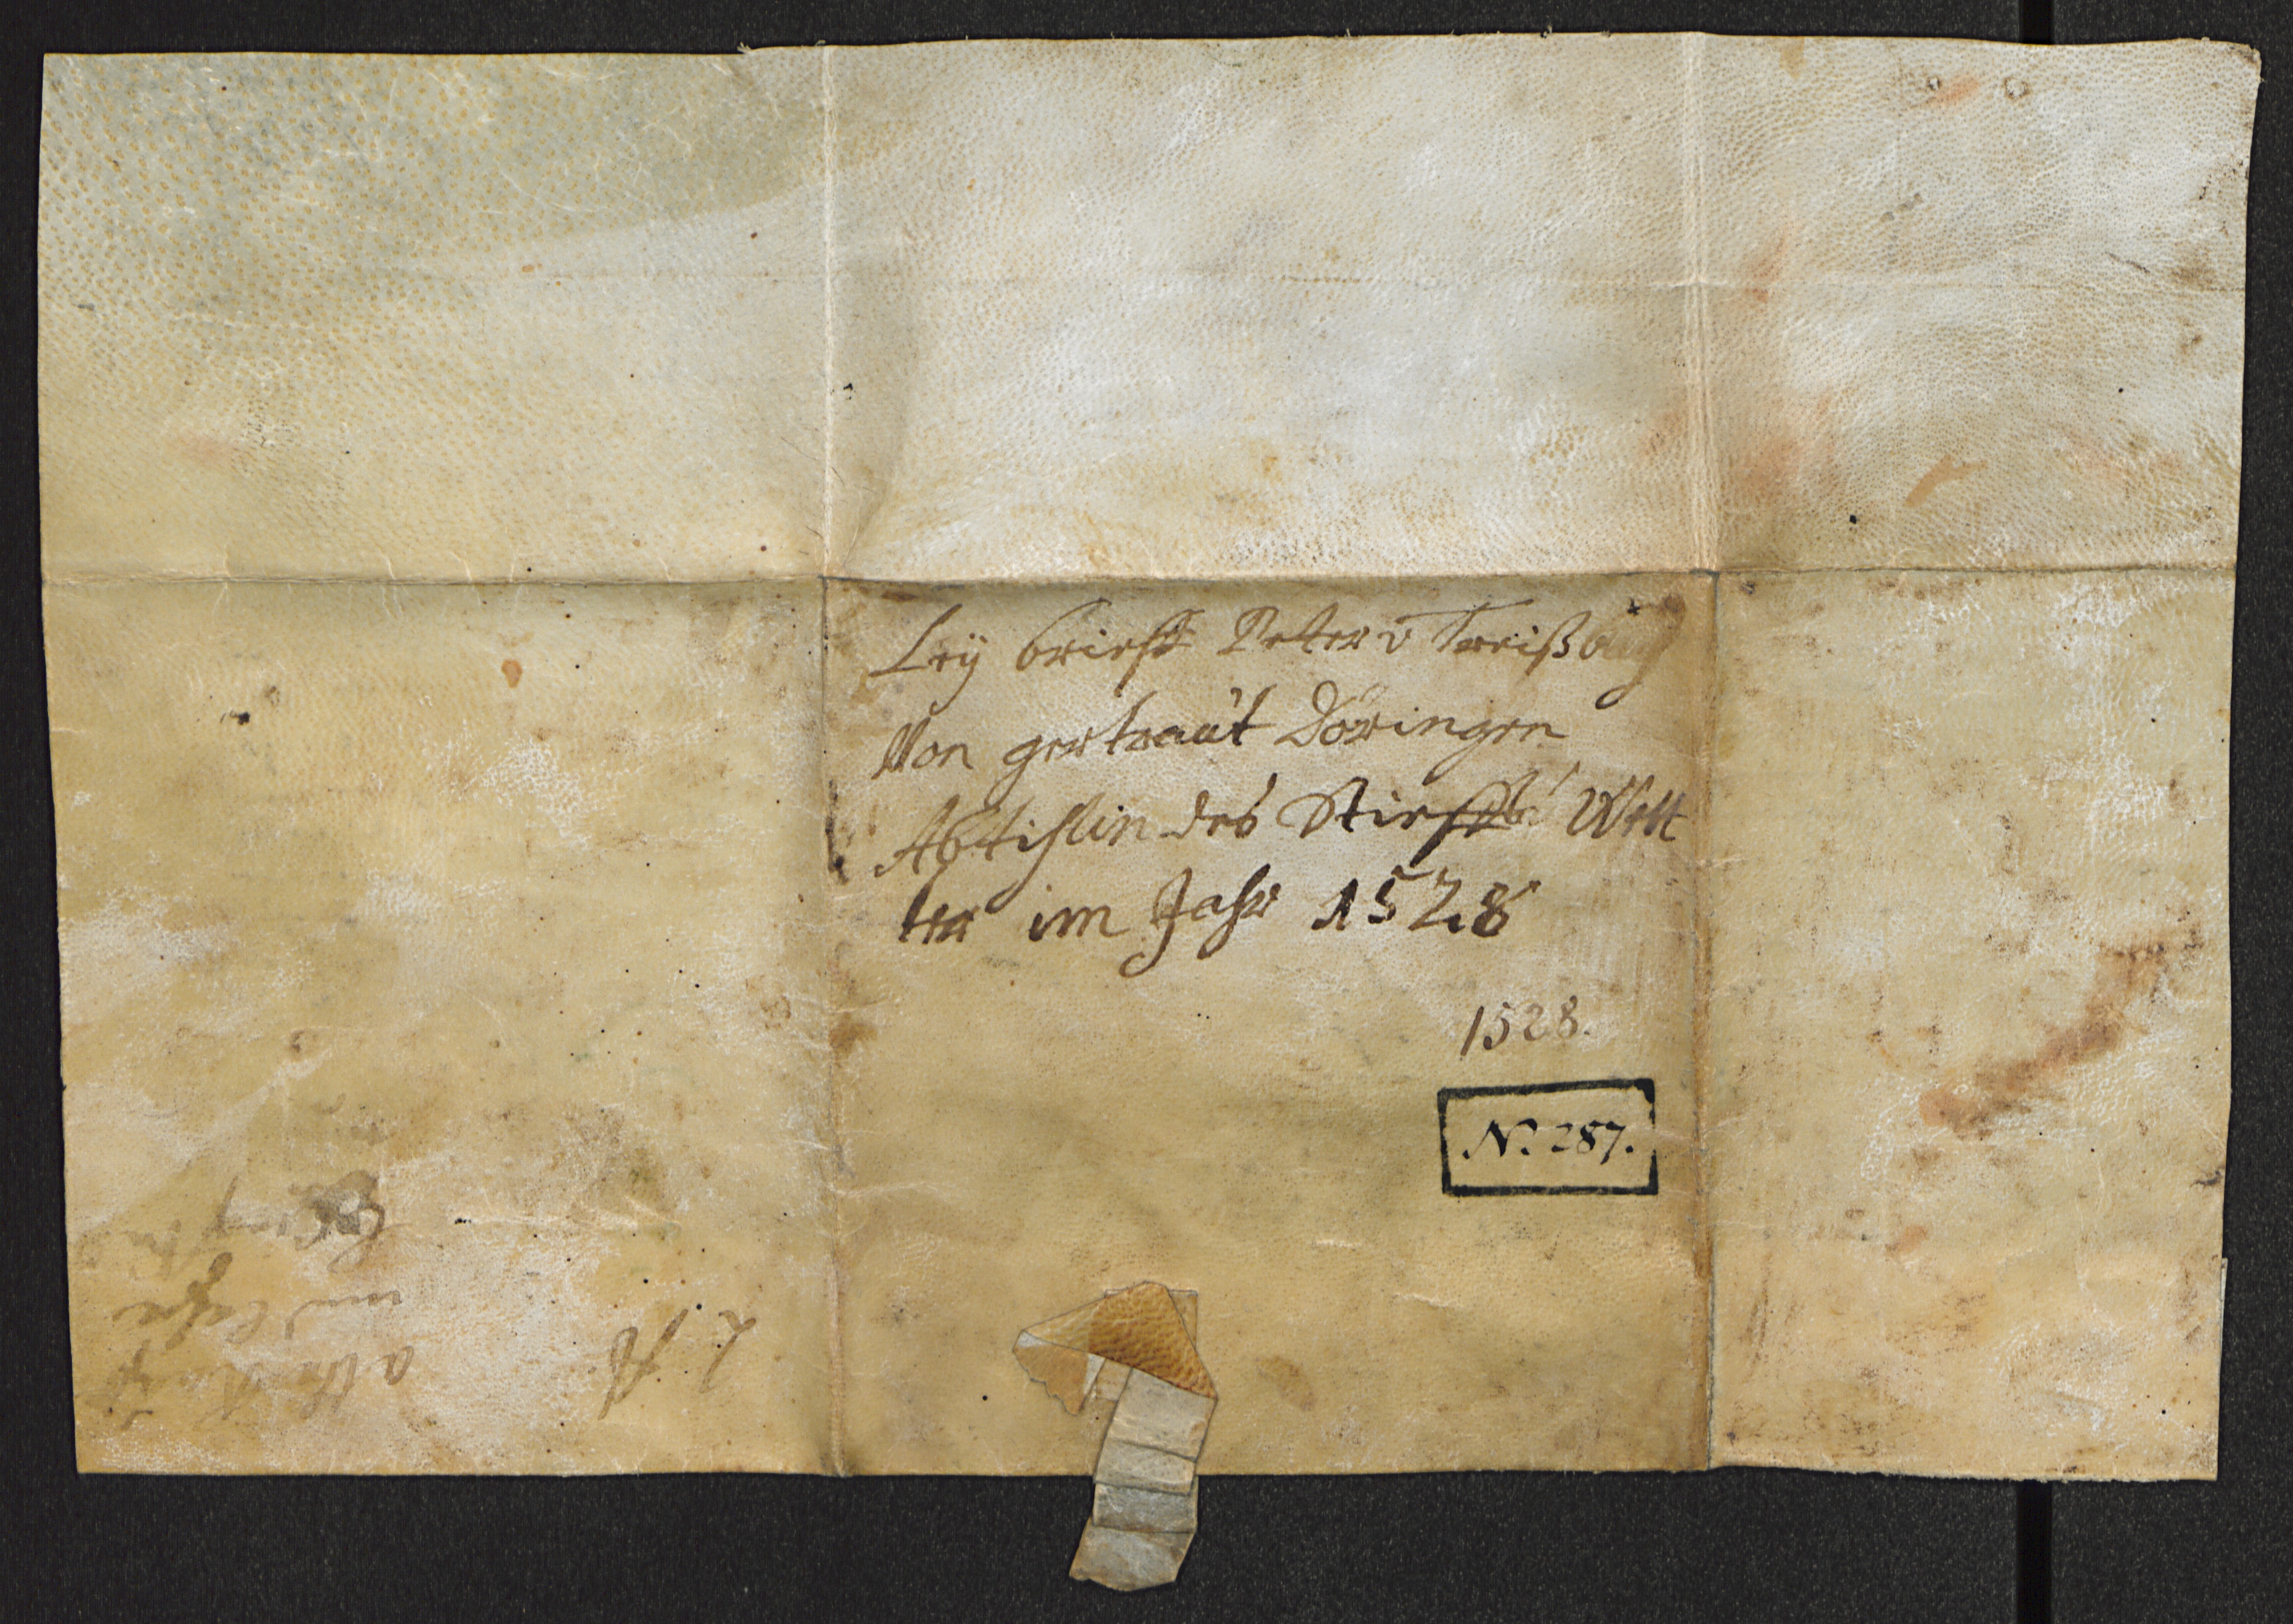 Ley brieff Peter v Treißbach
Von gertraut Döringen
Abtißin des Stiefts Wett
ter im Jahr 1528
1528.
No. 287.